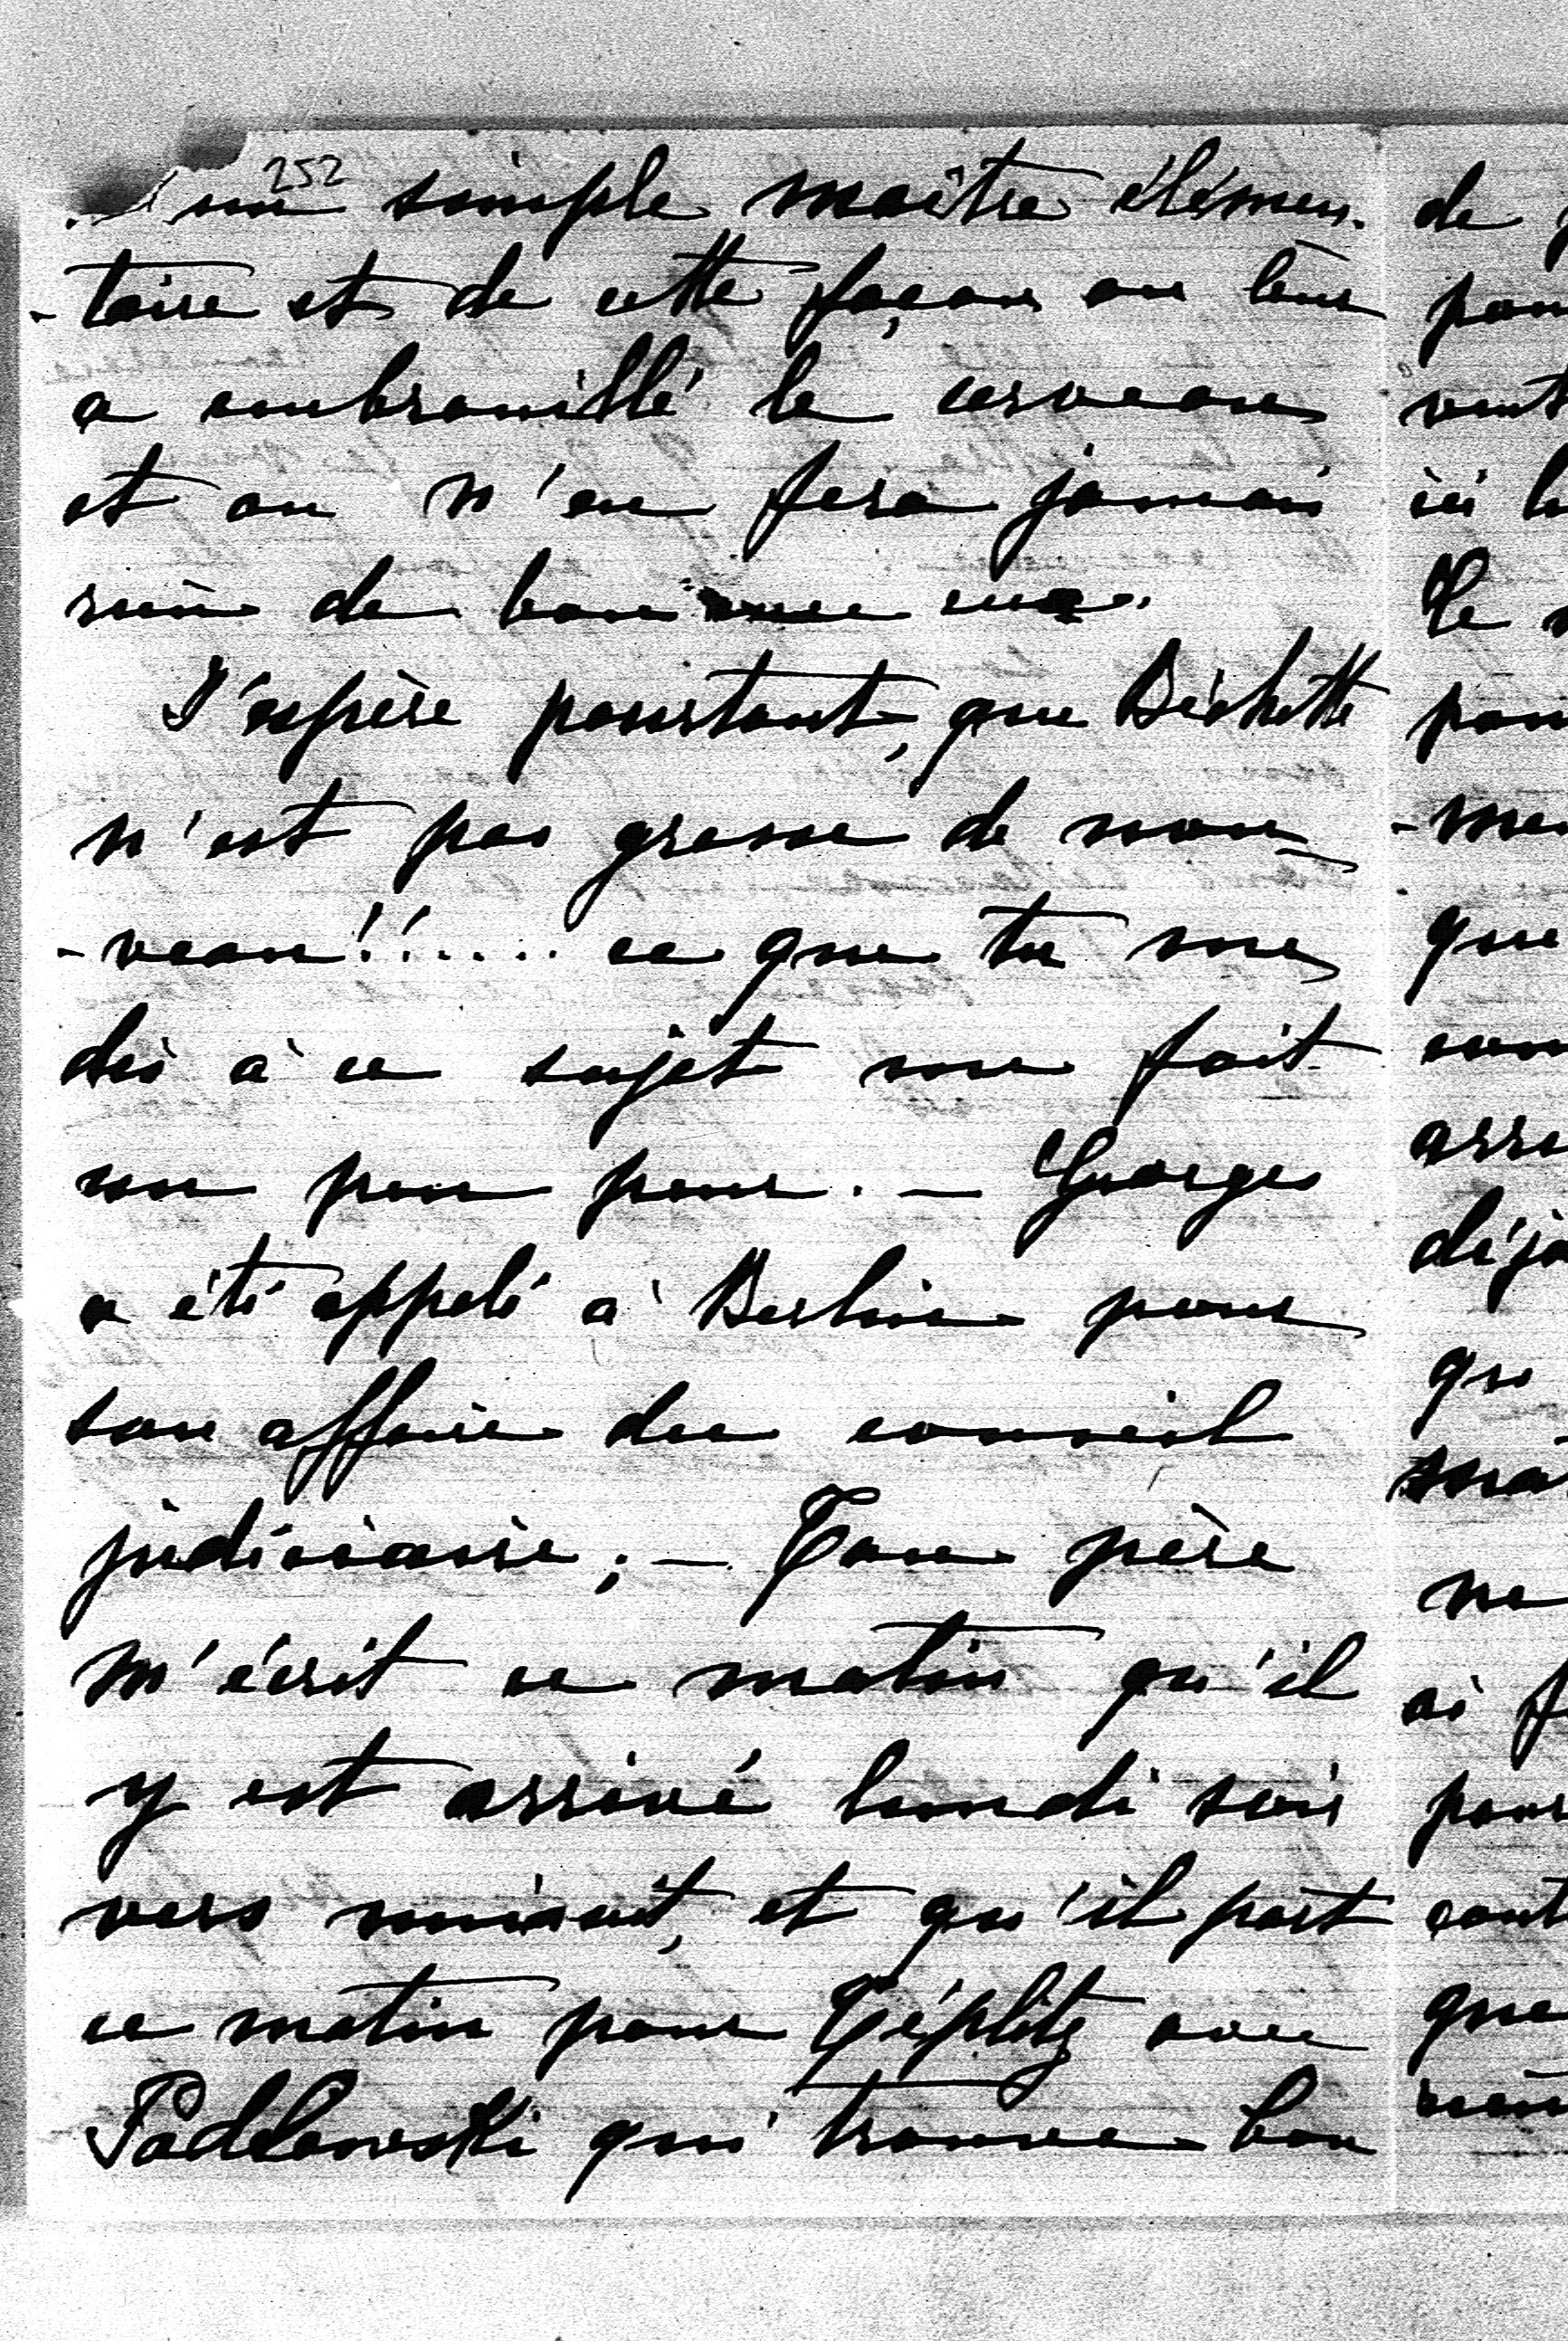 252
un simple maître élémen-
-taire et de cette façon on leur
a embrouillé le cerveau
et on n'en fera jamais
rien de bon
J'espère pourtant, que Bichette
n'est pas grosse de nou-
-veau!!..... ce que tu me
dis à ce sujet me fait
un peu peur. — Georges
a été appelé à Berlin pour
son affaire du conseil
judiciaire; — Ton père
m'écrit ce matin qu'il
y est arrivé lundi soir
vers minuit, et qu'il part
ce matin pour Téplitz avec
Padlewski qui trouve bon
de
ici
Le
que
déjà
qu
ne
ai
que